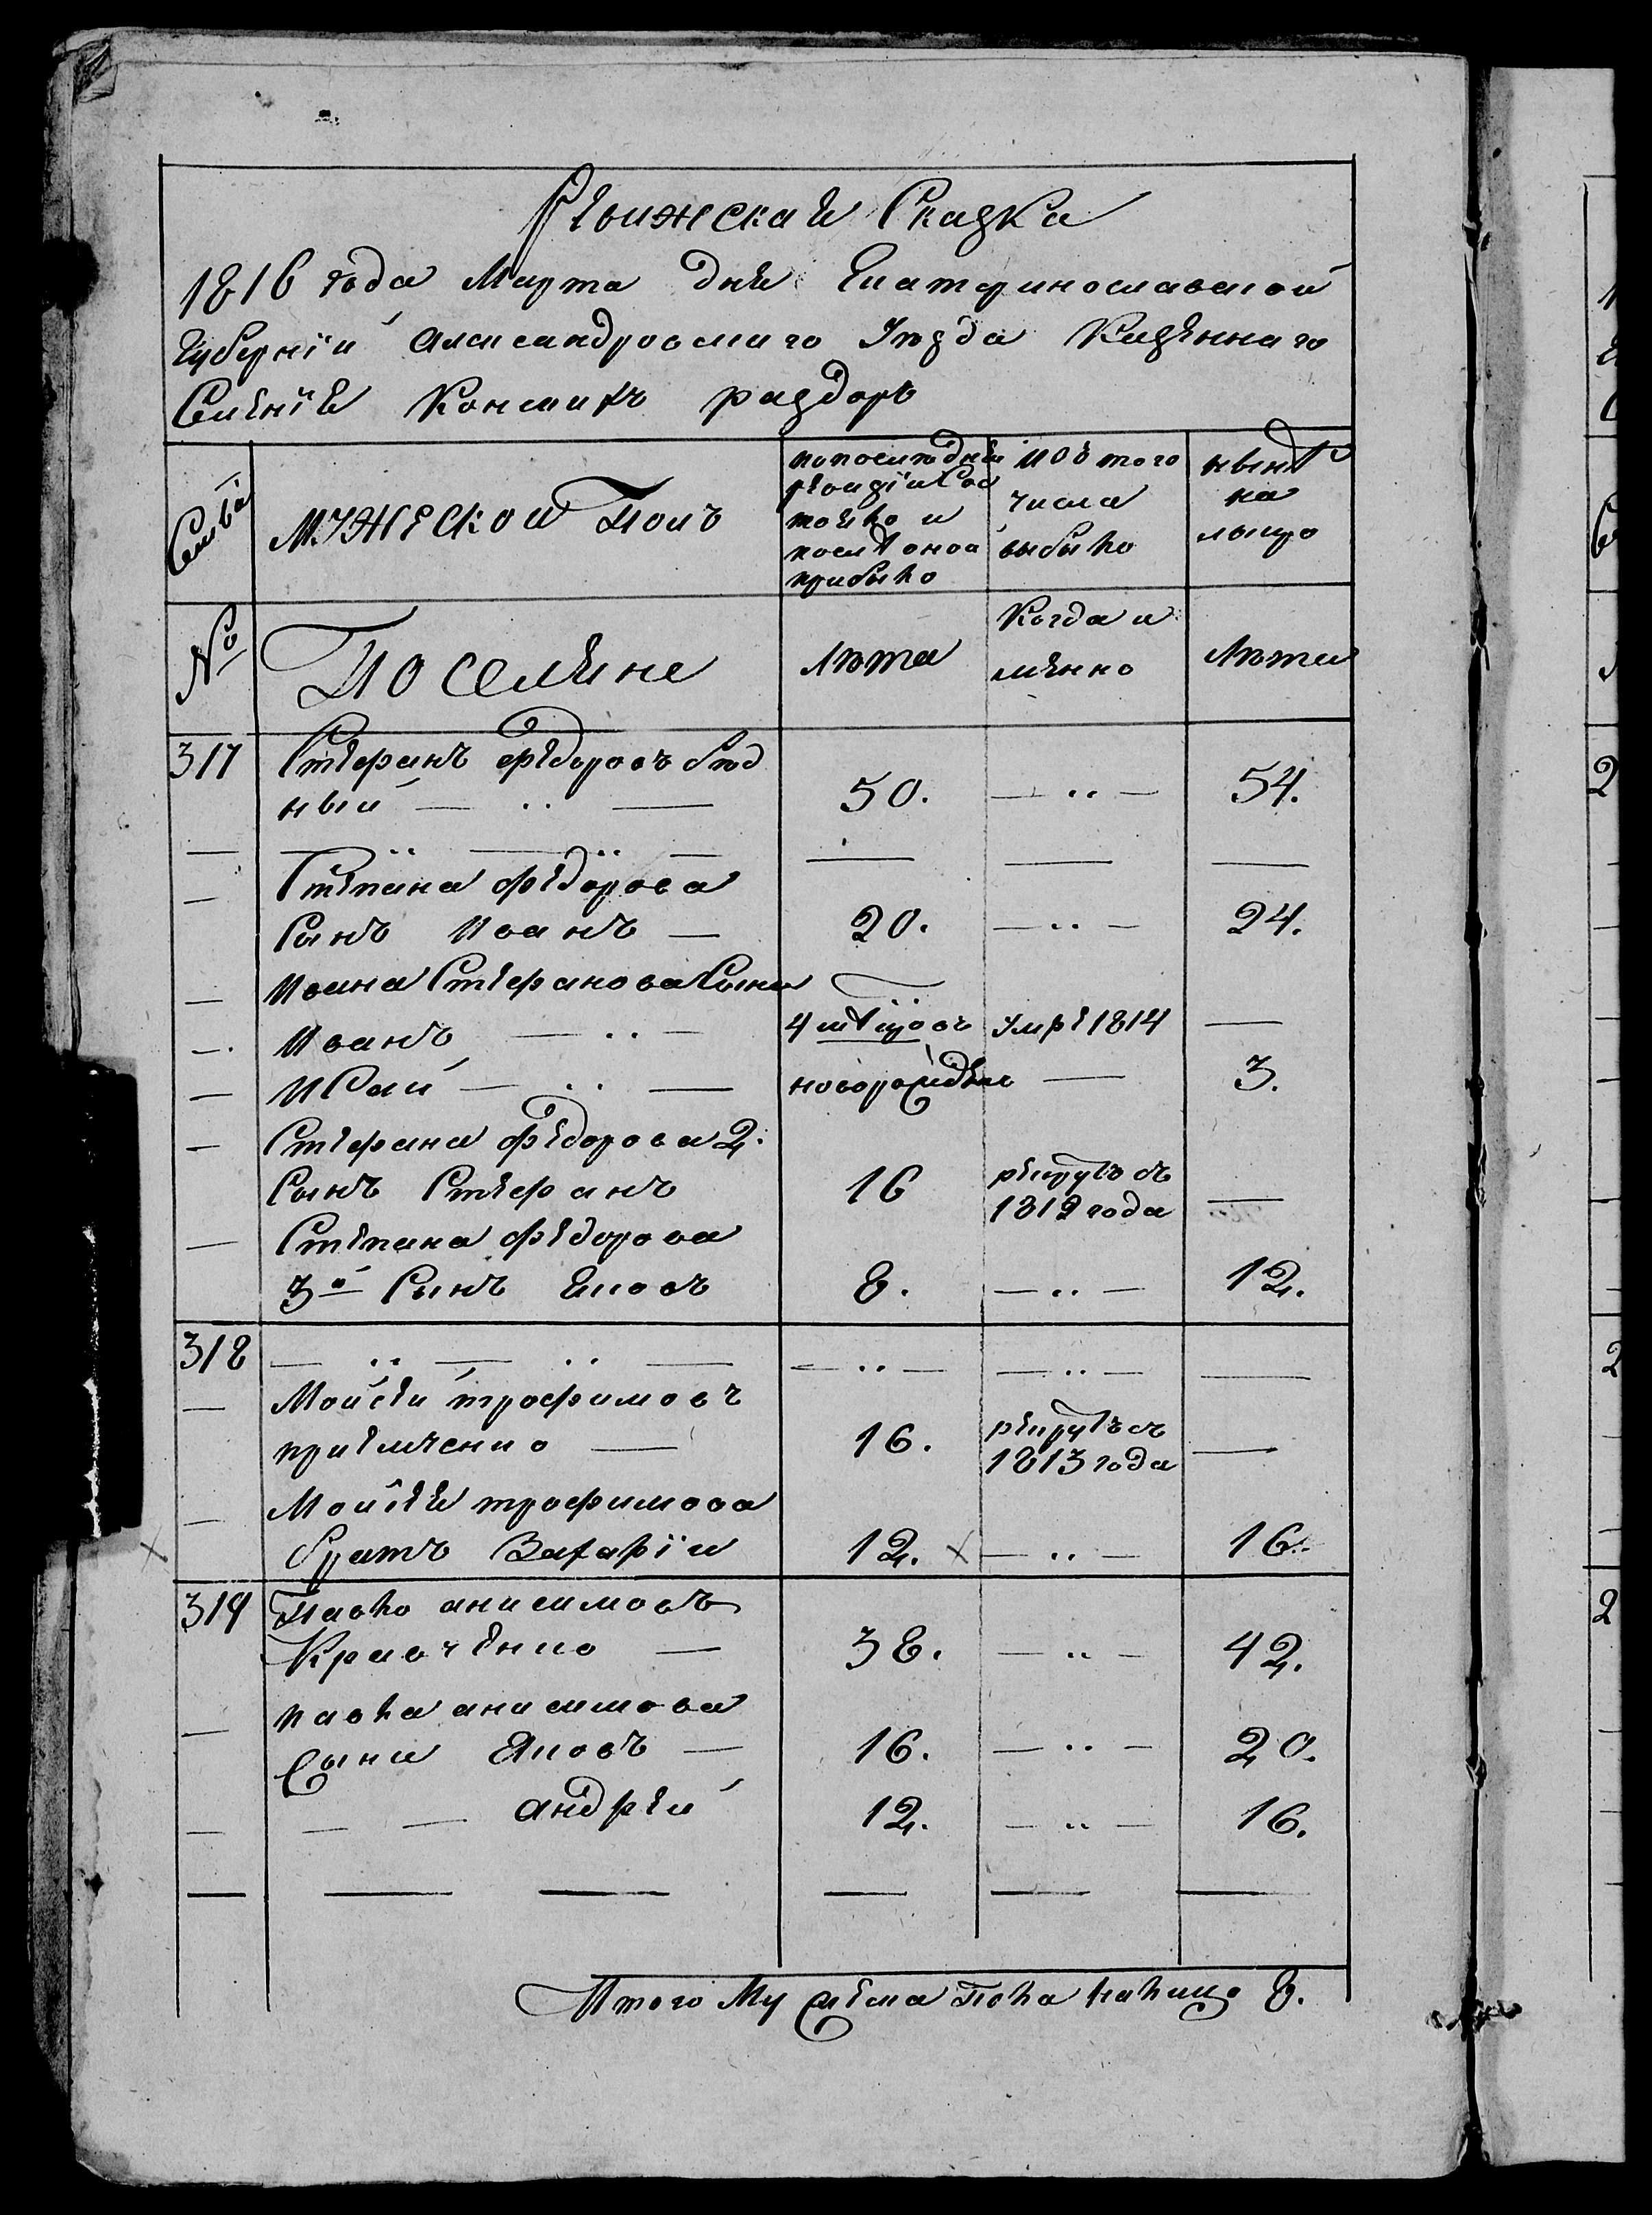 Ревижская Сказка
1816 года Марта дня Екатеринославской
Губернїи Александровскаго Уѣзда Казеннаго
Селенїя Конскихъ раздоръ
Семьи
мужеской Полъ
по последней ревизїи Состояло и после оной прибыло
изъ того числа выбыло
ныне на лицо
№
Поселяне
Лѣта
Когда именно
Лѣта
317 Стефанъ Федоровъ Бѣд
ный — 50. — 54.
Степана Федорова
Сынъ Иванъ — 20. — 24.
Ивана Стефанова Сыны
Иванъ — 4 месяцовъ умре 1814 —
Исай — новорожден — 3.
Стефана Федорова 2.
Сынъ Стефанъ 16 рекрутъ съ 1812 года —
Степана Федорова
3й Сынъ Яковъ 8. — 12.
318 — — — —
Мойсей трофимовъ
— 16. рекрутъ съ 1813 года —
Мойсея трофимова
братъ Захарїи 12. х — 16.
319 Павло анисимовъ
Кравченко — 38. — 42.
павла анисимова
Сыни Яковъ — 16. — 20.
— — андрей 12. — 16.
Итого Мужеска Пола налицо 8.